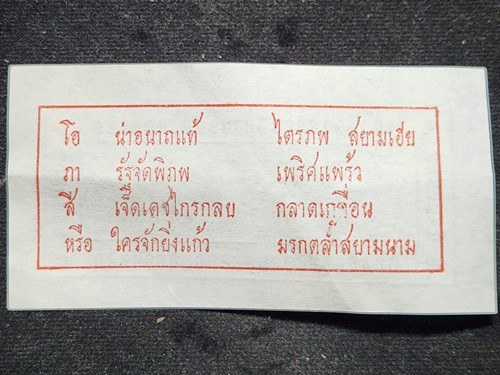 โอ น่าอนาถแท้ ไตรภพ สยามเฮย
ภา รัฐจัดพิภพ เพริศแพร้ว
สี เจ็ดเดชไกรกลบ กลาดเกลื่อน
หรือ ใครจักยิ่งแก้ว มรกตล้ำสยามนาม